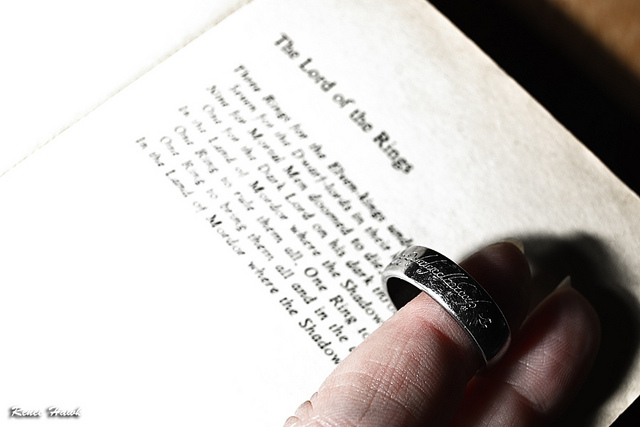 The Lord of the Rings
Three Rings for the Elven-kings und
Seven for the Dwarf-lords in their
Nine for Mortal Men doomed to die
One for the Dark Lord on his dark thro
In the Land of Mordor where the Shadow
One Ring to rule them all, One Ring to
One Ring to bring them all and in the
In the Land of Mordor where the Shadow
Renee Hawk